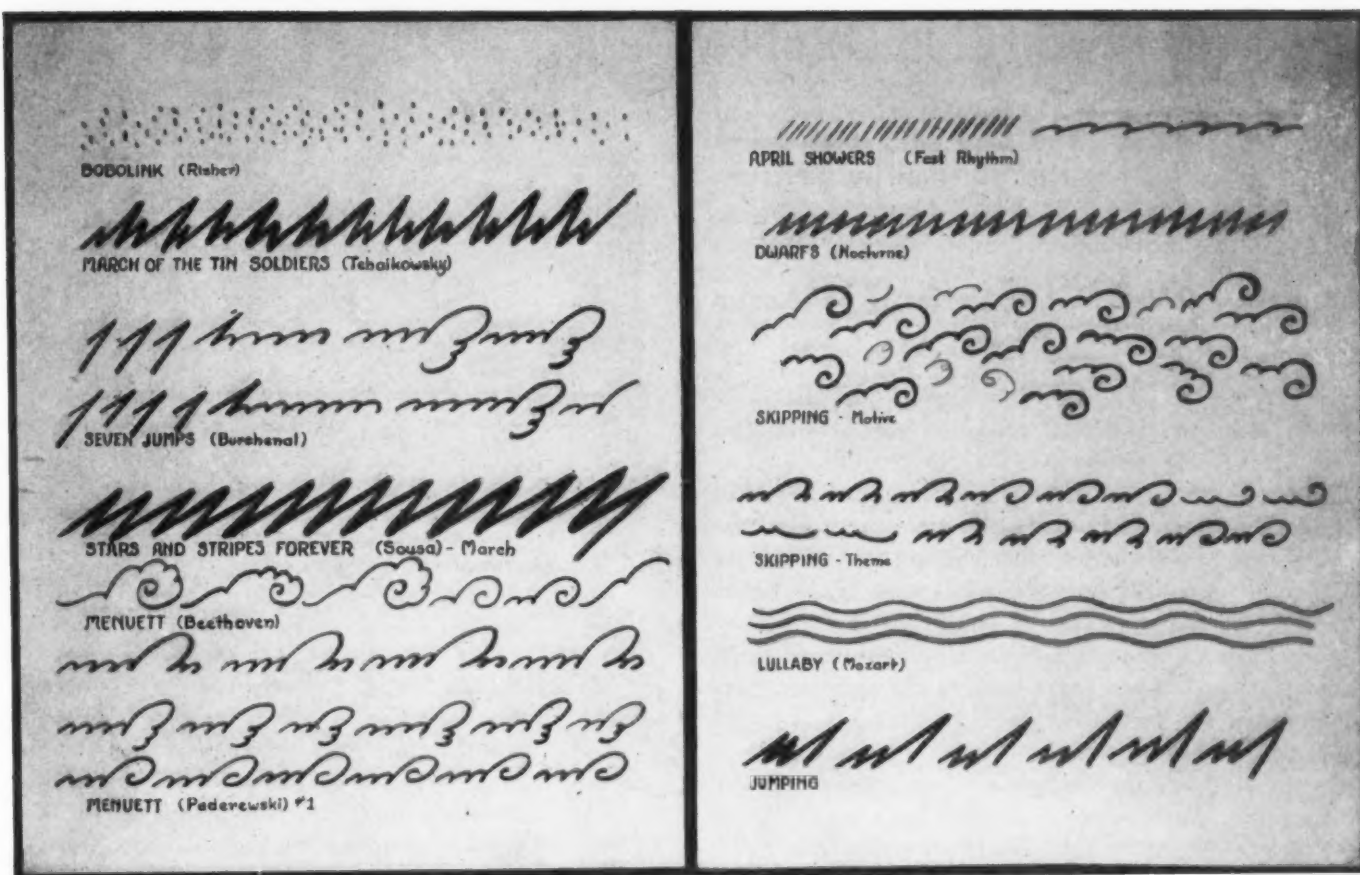 BOBOLINK (Risher)
MARCH OF THE TIN SOLDIERS (Tchaikowsky)
SEVEN JUMPS (Burchenal)
STARS AND STRIPES FOREVER (Sousa) - March
MENUETT (Beethoven)
MENUETT (Paderewski) #1
APRIL SHOWERS (Fast Rhythm)
DWARFS (Nocturne)
SKIPPING - Motive
SKIPPING - Theme
LULLABY (Mozart)
JUMPING